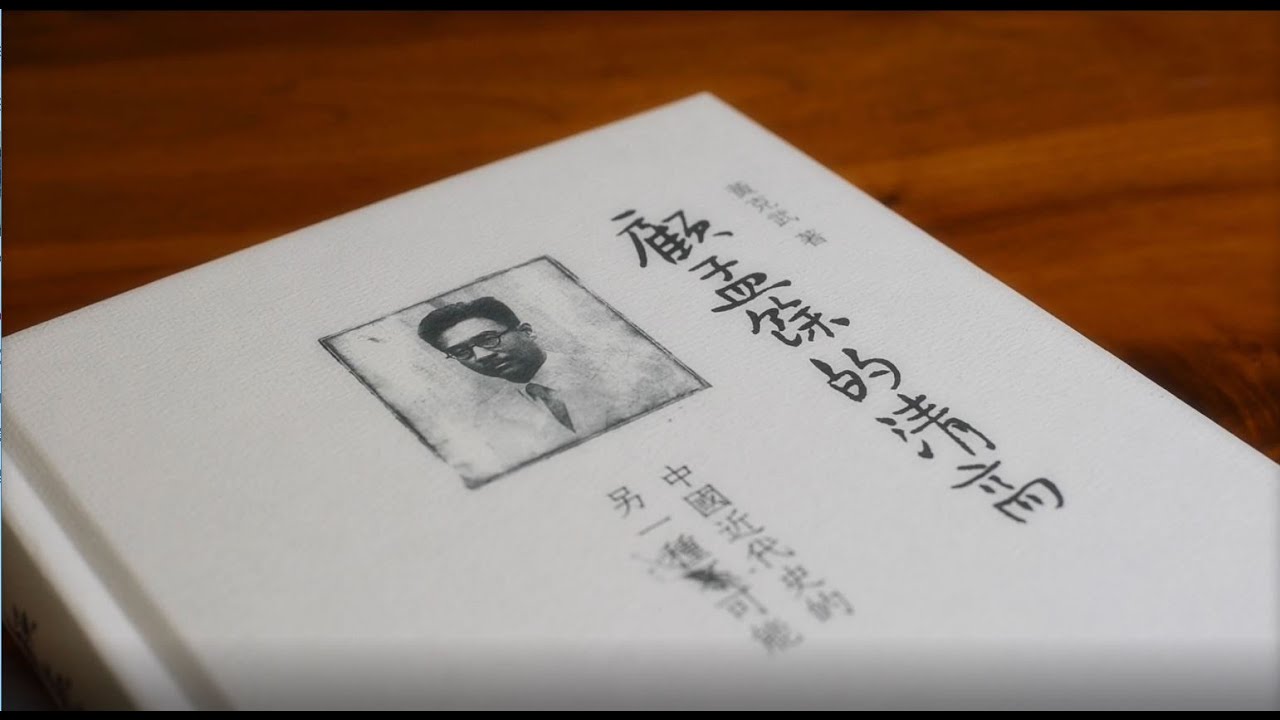 黃克武 著
顧孟餘的清高
中國近代史的
另一種可能